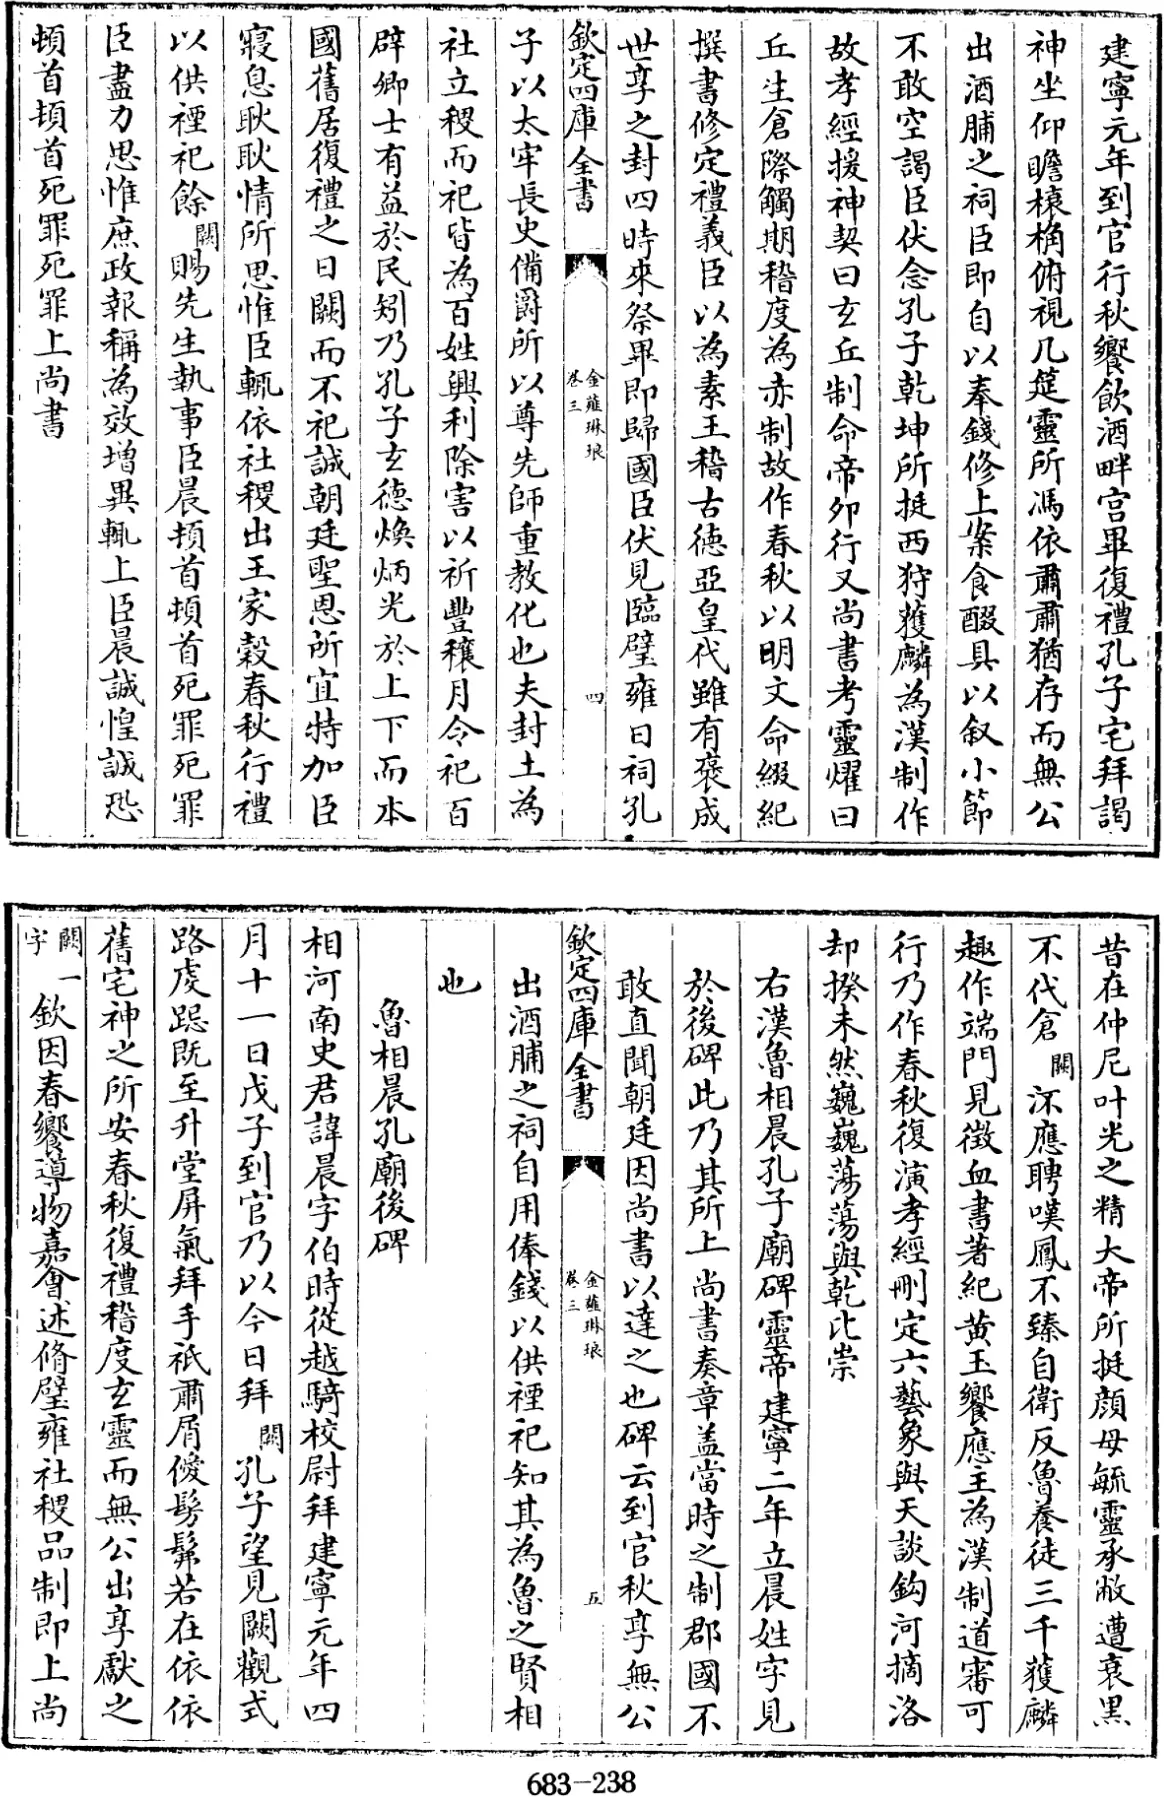 建寧元年到官行秋饗飲酒畔宫畢復禮孔子宅拜謁
神坐仰瞻榱桷俯視几筵靈所馮依肅肅猶存而無公
出酒脯之祠臣即自以奉錢修上案食醊具以叙小節
不敢空謁臣伏念孔子乾坤所挺西狩獲麟為漢制作
故孝經援神契曰玄丘制命帝卯行又尚書考靈燿曰
丘生倉際觸期稽度為赤制故作春秋以明文命綴紀
撰書修定禮義臣以為素王稽古徳亞皇代雖有襃成
世享之封四時來祭畢即歸國臣伏見臨璧雍日祠孔
欽定四庫全書
金薤琳琅
卷三
四
子以太牢長吏備爵所以尊先師重教化也夫封土為
社立稷而祀皆為百姓興利除害以祈豐穰月令祀百
辟卿士有益於民矧乃孔子玄徳煥炳光於上下而本
國舊居復禮之日闕而不祀誠朝廷聖恩所宜特加臣
寢息耿耿情所思惟臣輒依社稷出王家榖春秋行禮
以供禋祀餘闕賜先生執事臣晨頓首頓首死罪死罪
臣盡力思惟庶政報稱為效增異輒上臣晨誠惶誠恐
頓首頓首死罪死罪上尚書
昔在仲尼叶光之精大帝所挺顔母毓靈承敝遭衰黑
不代倉闕深應聘嘆鳳不臻自衛反魯養徒三千獲麟
趣作端門見徵血書著紀黄玉饗應王為漢制道審可
行乃作春秋復演孝經刪定六藝象與天談鈎河摘洛
却揆未然巍巍蕩蕩與乾比崇
右漢魯相晨孔子廟碑靈帝建寧二年立晨姓字見
於後碑此乃其所上尚書奏章盖當時之制郡國不
敢直聞朝廷因尚書以達之也碑云到官秋享無公
欽定四庫全書
金薤琳琅
卷三
五
出酒脯之祠自用俸錢以供禋祀知其為魯之賢相
也
魯相晨孔廟後碑
相河南史君諱晨字伯時從越騎校尉拜建寧元年四
月十一日戊子到官乃以今日拜闕孔子望見闕觀式
路虔跽既至升堂屏氣拜手祇肅屑僾髣髴若在依依
舊宅神之所安春秋復禮稽度玄靈而無公出享獻之
闕一字欽因春饗導物嘉會述脩璧雍社稷品制即上尚
683-238